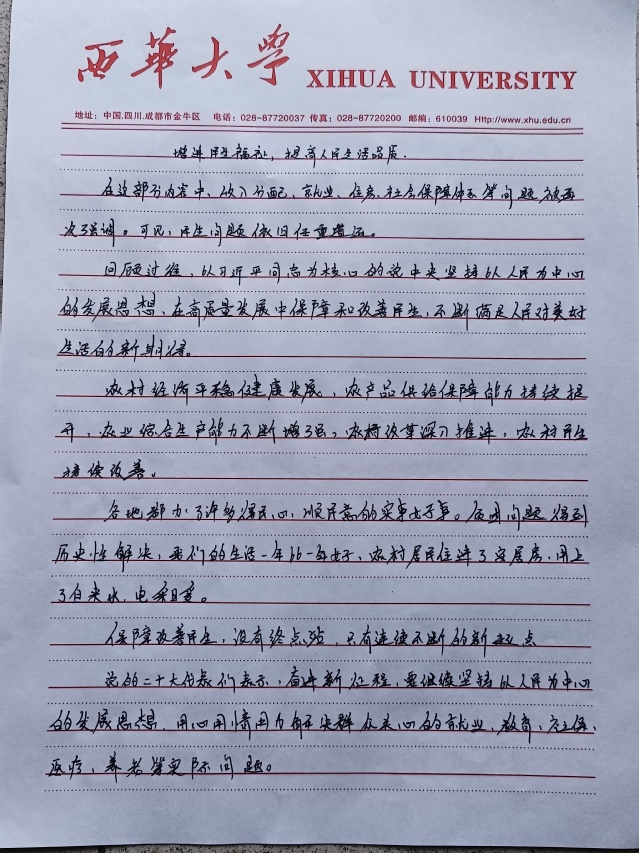 西华大学 XIHUA UNIVERSITY
地址：中国.四川.成都市金牛区 电话：028-87720037 传真：028-87720200 邮编：610039 Http://www.xhu.edu.cn
增进民生福祉，提高人民生活品质.
在这部分内容中，收入分配、就业、住房、社会保障体系等问题被再
次强调。可见，民生问题依旧任重道远。
回顾过往，以习近平同志为核心的党中央坚持以人民为中心
的发展思想、在高质量发展中保障和改善民生，不断满足人民对美好
生活的新期待。
农村经济平稳健康发展，农产品供给保障能力持续提
升，农业综合生产能力不断增强，农村改革深入推进，农村民生
持续改善。
各地都办了许多得民心、顺民意的实事好事。 问题得到
历史性解决，我们的生活一年比一年好，农村居民住进了安居房，用上
了自来水，电 。
保障改善民生，没有终点站，只有连续不断的新起点
党的二十大代表们表示，奋进新征程，要继续坚持以人民为中心
的发展思想，用心用情用力解决群众关心的就业、教育、社保、
医疗、养老等实际问题。